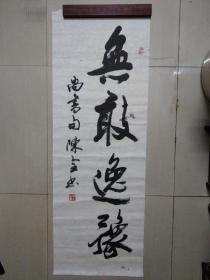 無敢逸豫
尚書句陳